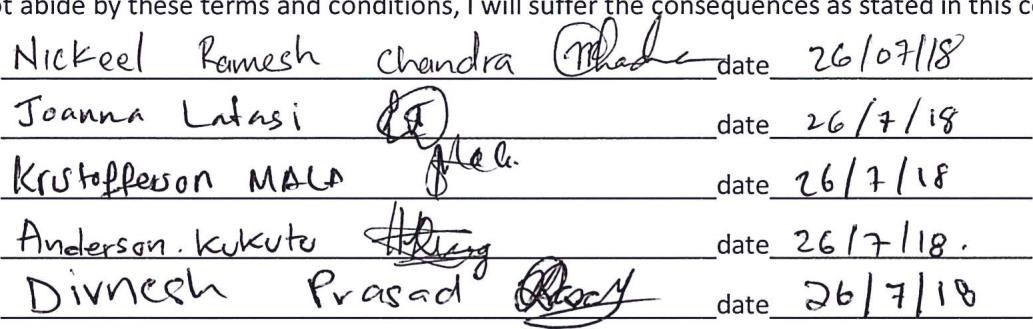 t abide by these terms and conditions, I will suffer the consequences as stated in this c
Nickeel Ramesh Chandra date 26/07/18
Joanna Latasi date 26/7/18
Kristofferson MALA date 26/7/18
Anderson. Kukutu date 26/7/18.
Divnesh Prasad date 26/7/18